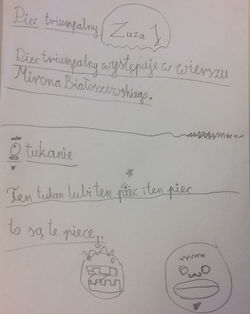 Piec tryumfalny Zuza J
Piec tryumfalny występuje w wierszu
Mirona Białoszewskiego.
O tukanie
Ten tukan lubi ten piec i ten piec
to są te piece.